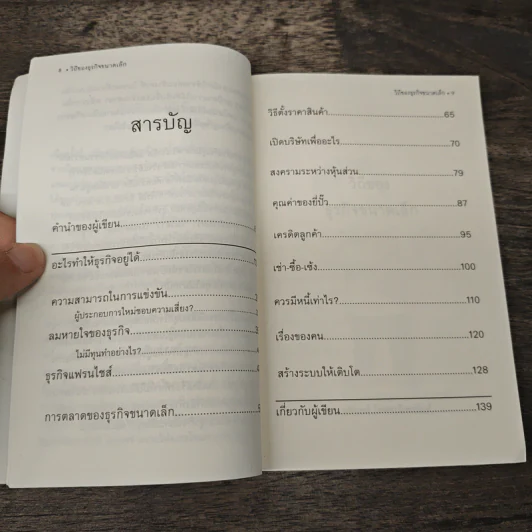 ๘ • วิถีของธุรกิจขนาดเล็ก
สารบัญ
คำนำของผู้เขียน
อะไรทำให้ธุรกิจอยู่ได้
ความสามารถในการแข่งขัน
ผู้ประกอบการใหม่ชอบความเสี่ยง?
ลมหายใจของธุรกิจ
ไม่มีทุนทำอย่างไร?
ธุรกิจแฟรนไชส์
การตลาดของธุรกิจขนาดเล็ก
วิถีของธุรกิจขนาดเล็ก • ๙
วิธีตั้งราคาสินค้า 65
เปิดบริษัทเพื่ออะไร 70
สงครามระหว่างหุ้นส่วน 79
คุณค่าของยี่ปั๊ว 87
เครดิตลูกค้า 95
เช่า-ซื้อ-เซ้ง 100
ควรมีหนี้เท่าไร? 110
เรื่องของคน 120
สร้างระบบให้เติบโต 128
เกี่ยวกับผู้เขียน 139